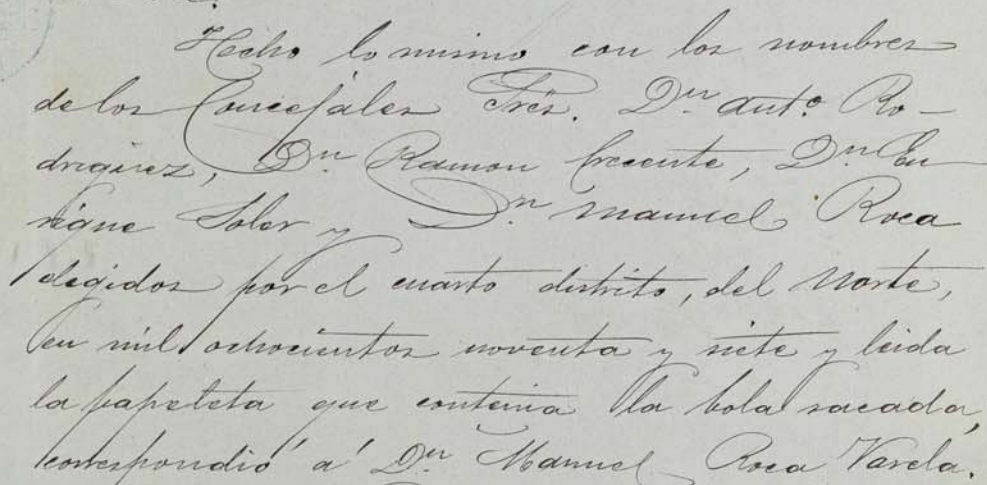 Hecho lo mismo con los nombres
de los Concejales Sres. Dn. Antº. Ro-
driguez, Dn. Ramon Crecente, Dn. En-
rique Soler y Dn. Manuel Roca
elegidos por el cuarto distrito, del Norte,
en mil ochocientos noventa y siete y leida
la papeleta que contenia la bola sacada,
correspondió á Dn. Manuel Roca Varela.